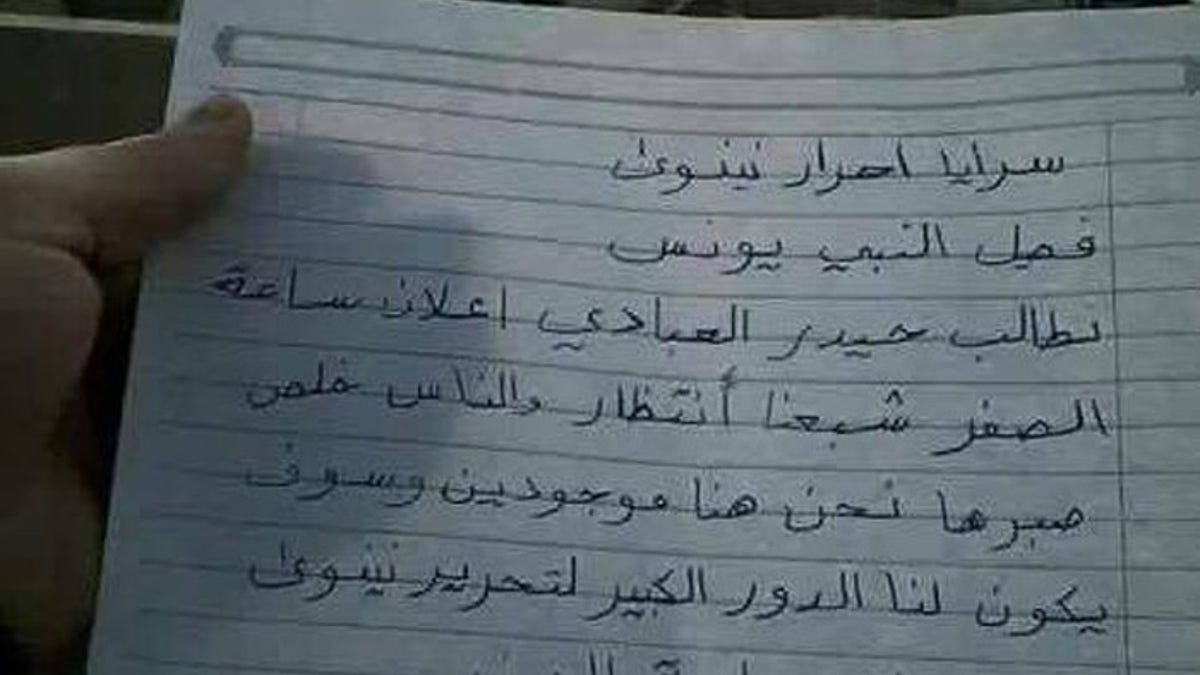 سرايا احرار نينوئ
فصل النبي يونس
نطالب حيدر العبادي اعلان ساعة
الصفر شبعنا أنتظار والناس خلص
صبرها نحن هنا موجودين وسوف
يكون لنا الدور الكبير لتحرير نينوئ